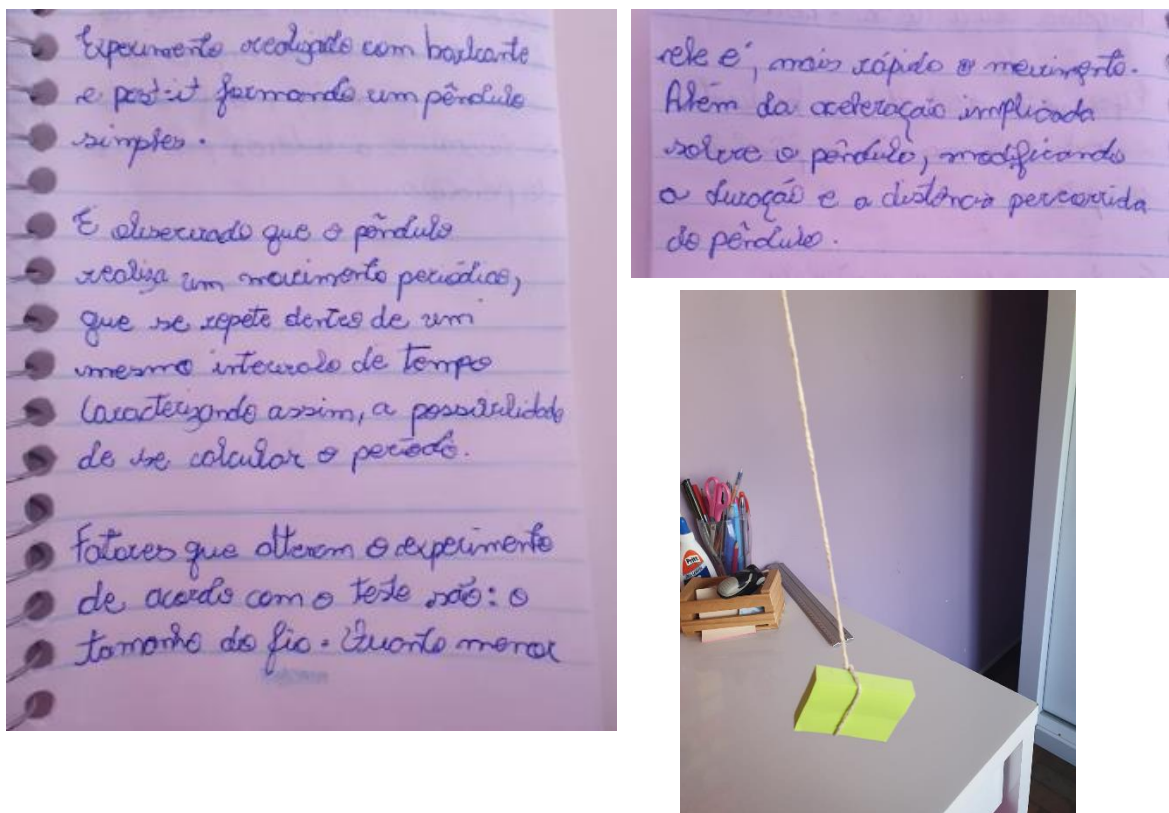 Experimento realizado com barbante
e post-it formando um pêndulo
simples.
É observado que o pêndulo
realiza um movimento periódico,
que se repete dentes de um
mesmo intervalo de tempo
caracterizando assim, a possibilidade
de se calcular o período.
Fatores que alterem o experimento
de acordo com o teste são: o
tamanho do fio. Quanto menor
ele é, mais rápido o movimento.
Além da aceleração implicada
sobre o pêndulo, modificando
a duração e a distância percorrida
do pêndulo.
Pritt